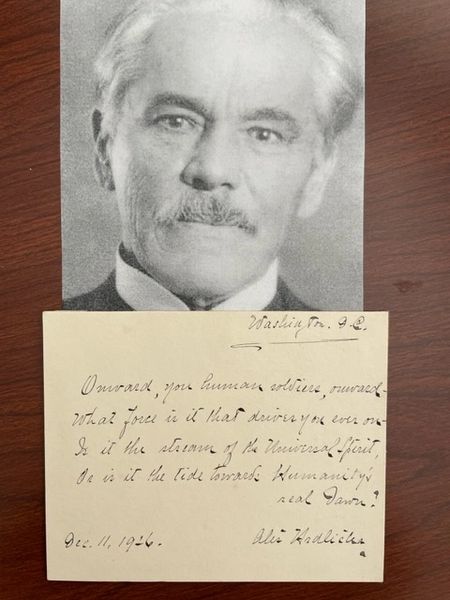 Washington. D.C.
Onward, you human soldiers, onward
What force is it that drives you ever on
Is it the stream of the Universal Spirit,
Or is it the tide towards Humanity's
real Dawn?
Dec. 11, 1936. Aleš Hrdlička